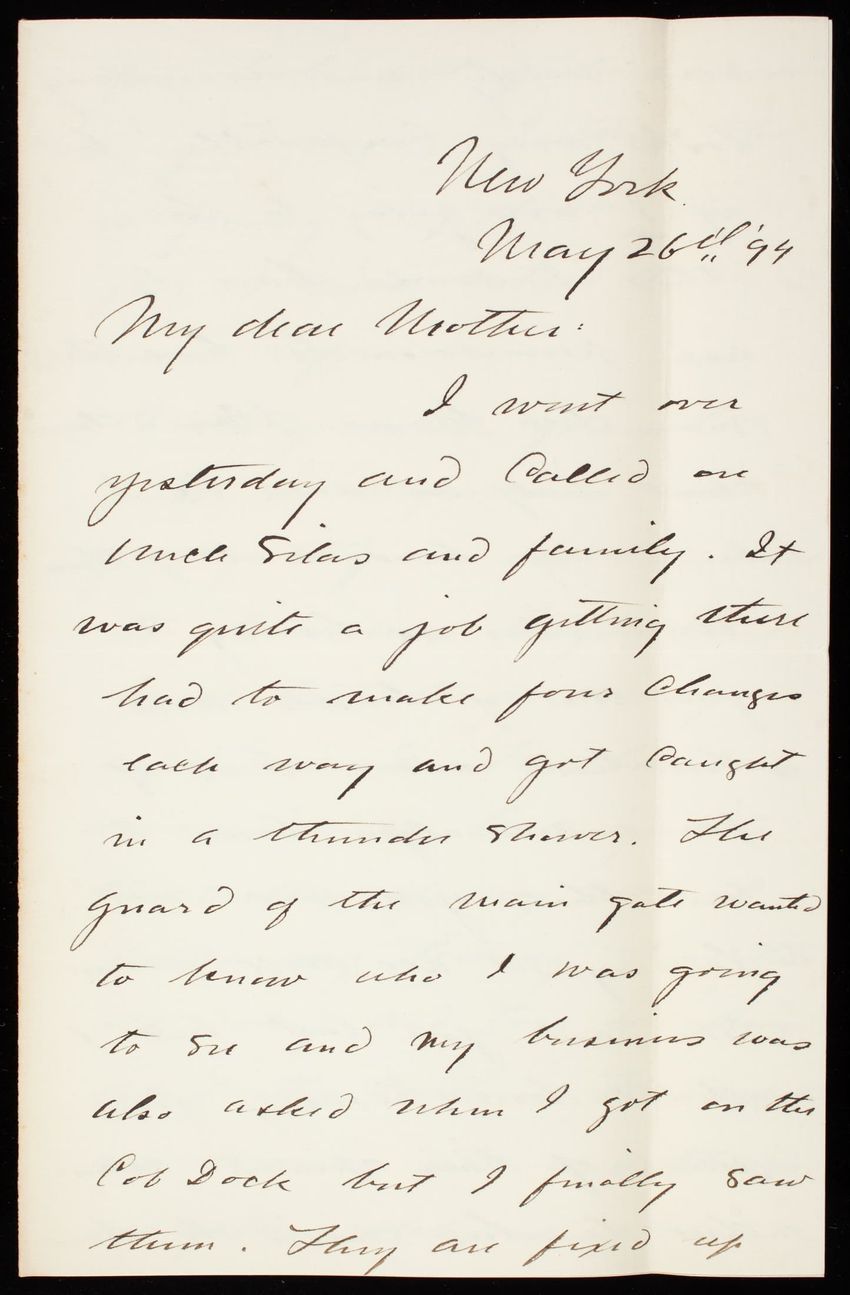 New York.
May 26th '94
My dear Mother:
I went over
yesterday and called on
Uncle Silas and family. It
was quite a job getting there
had to make four changes
each way and got caught
in a thunder shower. The
guard of the main gate wanted
to know who I was going
to see and my business was
also asked when I got on the
Cob Dock but I finally saw
them. They are fixed up